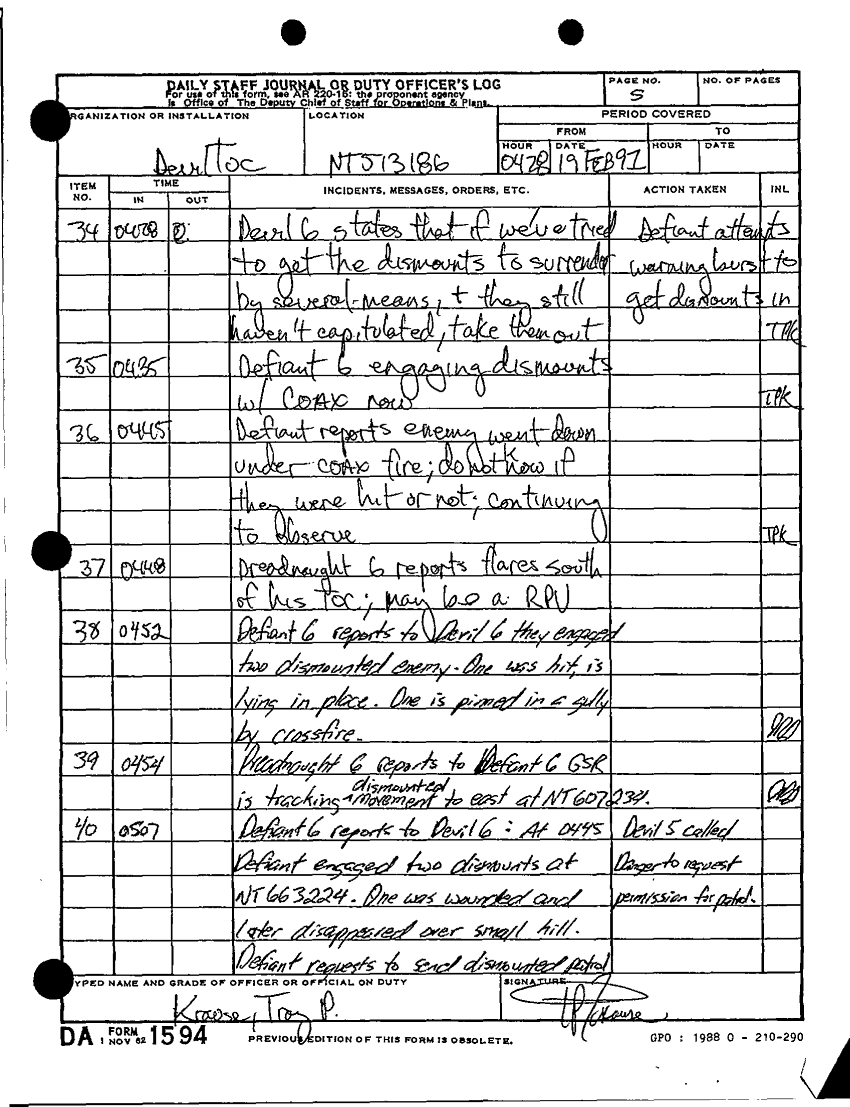 DAILY STAFF JOURNAL OR DUTY OFFICER'S LOG
For use of this form, see AR 220-15: the proponent agency
is Office of The Deputy Chief of Staff for Operations & Plans.
PAGE NO.
5
NO. OF PAGES
RGANIZATION OR INSTALLATION
Devil TOC
LOCATION
NT513186
PERIOD COVERED
FROM
TO
HOUR
0428
DATE
19 FEB 91
HOUR
DATE
ITEM NO.
TIME
IN
OUT
INCIDENTS, MESSAGES, ORDERS, ETC.
ACTION TAKEN
INL
34 0428 Devil 6 states that if we've tried Defiant attempts
to get the dismounts to surrender warning bursts to
by several means, + they still get dismounts in
haven't capitulated, take them out TPK
35 0435 Defiant 6 engaging dismounts
w/ COAX now TPK
36 0445 Defiant reports enemy went down
under COAX fire; do not know if
they were hit or not; continuing
to observe TPK
37 0448 Dreadnaught 6 reports flares south
of his TOC; may be a RPV
38 0452 Defiant 6 reports to Devil 6 they engaged
two dismounted enemy. One was hit, is
lying in place. One is pinned in a gully
by crossfire.
39 0454 Dreadnaught 6 reports to Defiant 6 GSR
is tracking dismounted movement to east at NT607234.
40 0507 Defiant 6 reports to Devil 6: At 0445 Devil 5 called
Defiant engaged two dismounts at Danger to request
NT663224. One was wounded and permission for patrol.
later disappeared over small hill.
Defiant requests to send dismounted patrol
TYPED NAME AND GRADE OF OFFICER OR OFFICIAL ON DUTY
Krause, Troy P.
SIGNATURE
TP Krause
DA FORM 1 NOV 62 1594
PREVIOUS EDITION OF THIS FORM IS OBSOLETE.
GPO : 1988 O - 210-290